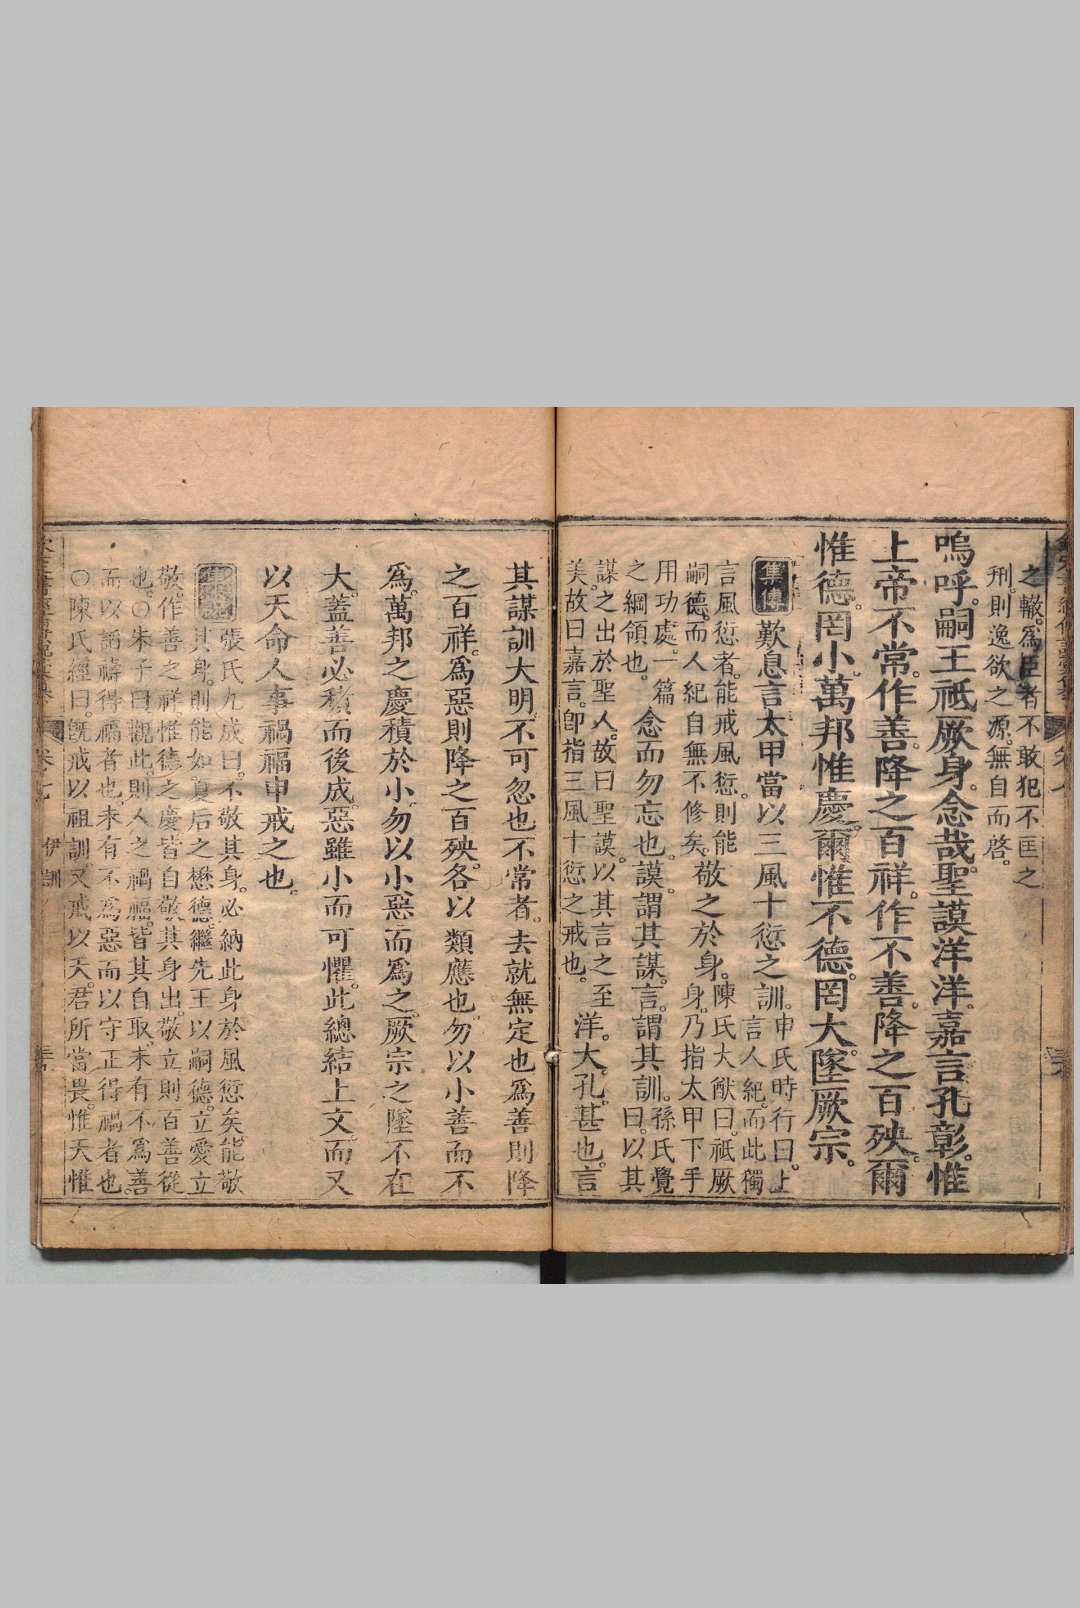 之轍爲臣者不敢犯不匡之
刑則逸欲之源無自而啓
嗚呼嗣王祗厥身念哉聖謨洋洋嘉言孔彰惟
上帝不常作善降之百祥作不善降之百殃爾
惟德罔小萬邦惟慶爾惟不德罔大墜厥宗
集傳
歎息言太甲當以三風十愆之訓
申氏時行曰上
言人紀而此獨
言風愆者能戒風愆則能
嗣德而人紀自無不修矣
敬之於身
陳氏大猷曰祗厥
身乃指太甲下手
用功處一篇
之綱領也
念而勿忘也謨謂其謀言謂其訓
孫氏覺
曰以其
謀之出於聖人故曰聖謨以其言之至
美故曰嘉言卽指三風十愆之戒也
洋大孔甚也言
其謀訓大明不可忽也不常者去就無定也爲善則降
之百祥爲惡則降之百殃各以類應也勿以小善而不
爲萬邦之慶積於小勿以小惡而爲之厥宗之墜不在
大蓋善必積而後成惡雖小而可懼此總結上文而又
以天命人事禍福申戒之也
集說
張氏九成曰不敬其身必納此身於風愆矣能敬
其身則能如夏后之懋德繼先王以嗣德立愛立
敬作善之祥惟德之慶皆自敬其身出敬立則百善從
也○朱子曰觀此則人之禍福皆其自取未有不爲善
而以謟禱得福者也未有不爲惡而以守正得禍者也
○陳氏經曰旣戒以祖訓又戒以天君所當畏惟天惟
卷之七
伊訓